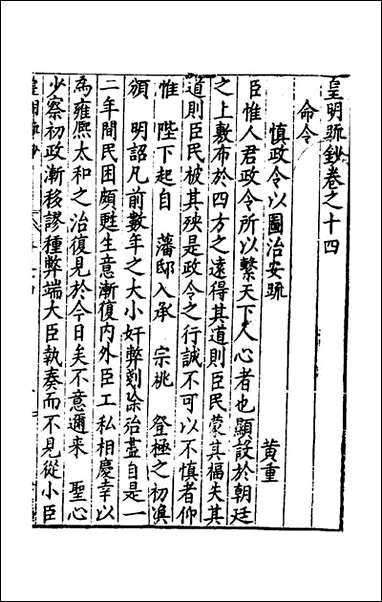 皇明疏鈔卷之十四
命令
慎政令以圖治安疏　黃重
臣惟人君政令所以繫天下人心者也顯設於朝廷
之上敷布於四方之遠得其道則臣民蒙其福失其
道則臣民被其殃是政令之行誠不可以不慎者仰
惟　陛下起自　藩邸入承　宗祧　登極之初渙
頒　明詔凡前數年之大小奸弊剗除治盡自是一
二年間民困頗甦生意漸復內外臣工私相慶幸以
為雍熈太和之治復見於今日矣不意邇來　聖心
少察初政漸移謬種弊端大臣執奏而不見從小臣